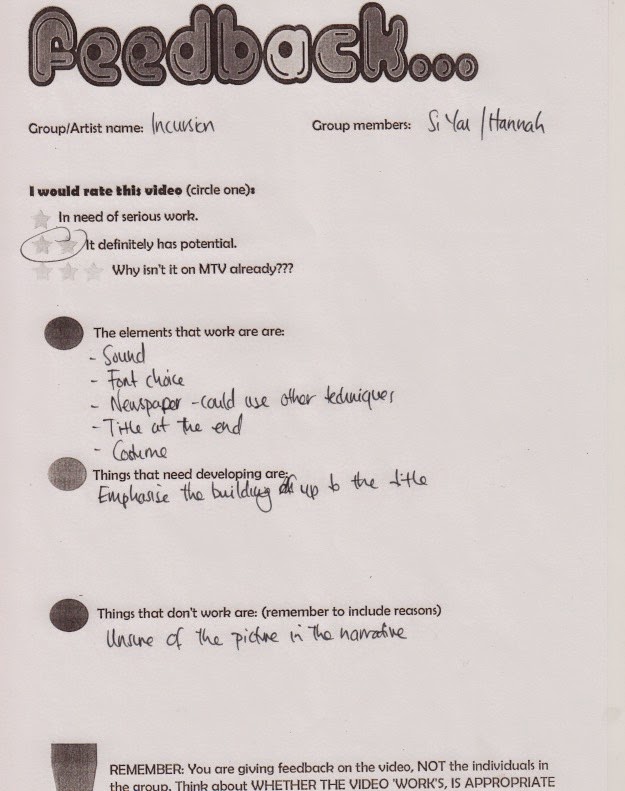 Feedback...
Group/Artist name: Incursion Group members: Si Yau / Hannah
I would rate this video (circle one):
In need of serious work.
It definitely has potential.
Why isn't it on MTV already???
The elements that work are are:
- Sound
- Font choice
- Newspaper - could use other techniques
- Title at the end
- Costume
Things that need developing are:
Emphasise the building up to the title
Things that don't work are: (remember to include reasons)
Unsure of the picture in the narrative
REMEMBER: You are giving feedback on the video, NOT the individuals in
the group. Think about WHETHER THE VIDEO 'WORK'S, IS APPROPRIATE